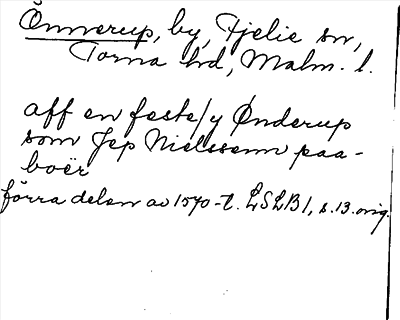 Önnerup, by, Fjelie sn,
Torna hd, Malm. l.
aff en feste/y Ønderup
som Jep Nielssenn paa-
boër
förra delen av 1570-t. LSLB1, s.13.orig.